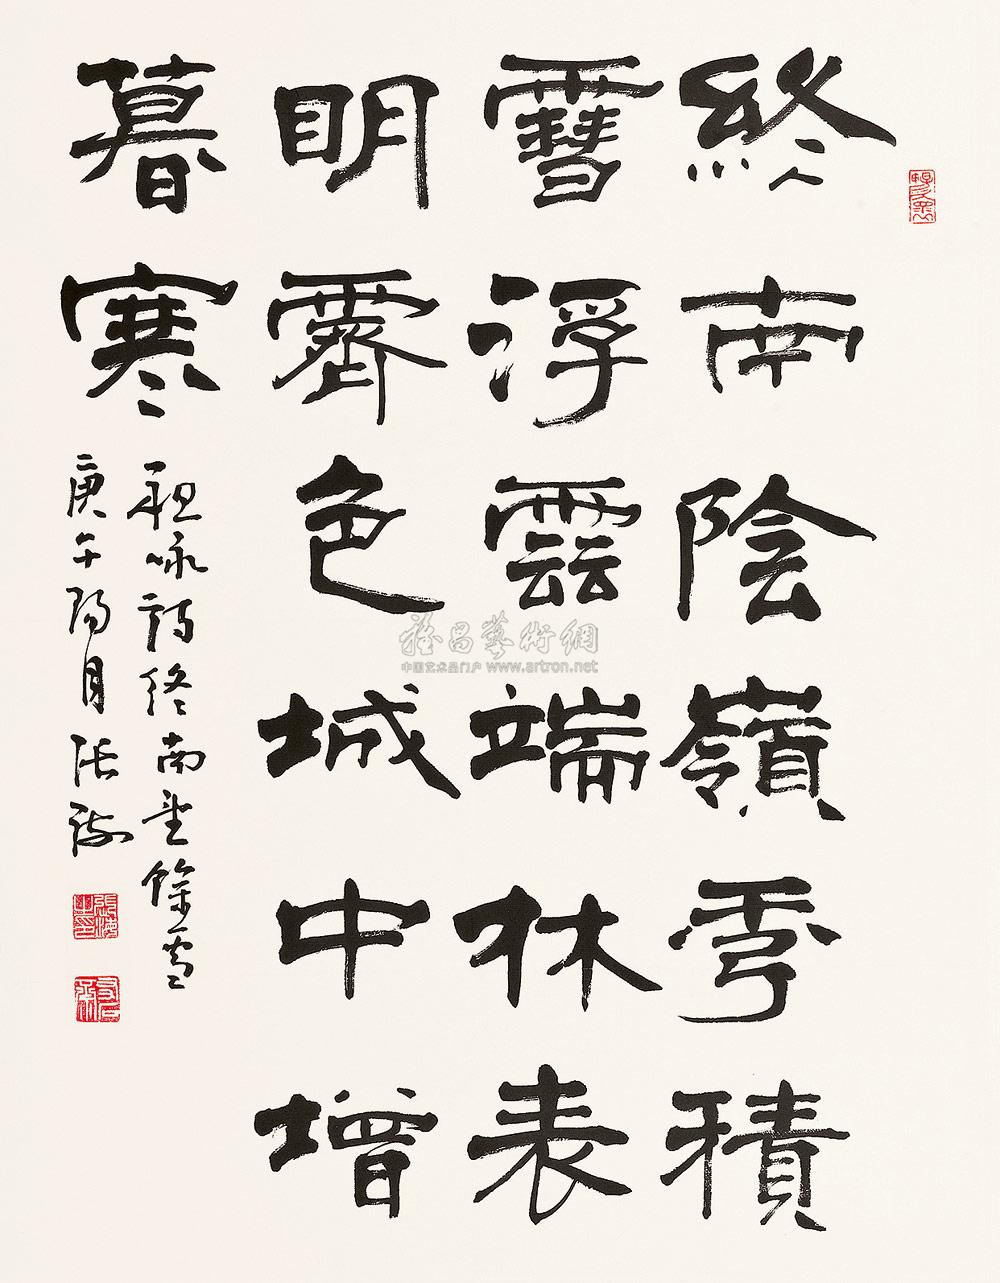 終南陰嶺秀積
䨮浮雲端林表
明霽色城中增
暮寒
祖詠詩終南望餘雪
庚午陽月張海
張海之印
雅昌藝術網
中国艺术品门户 www.artron.net